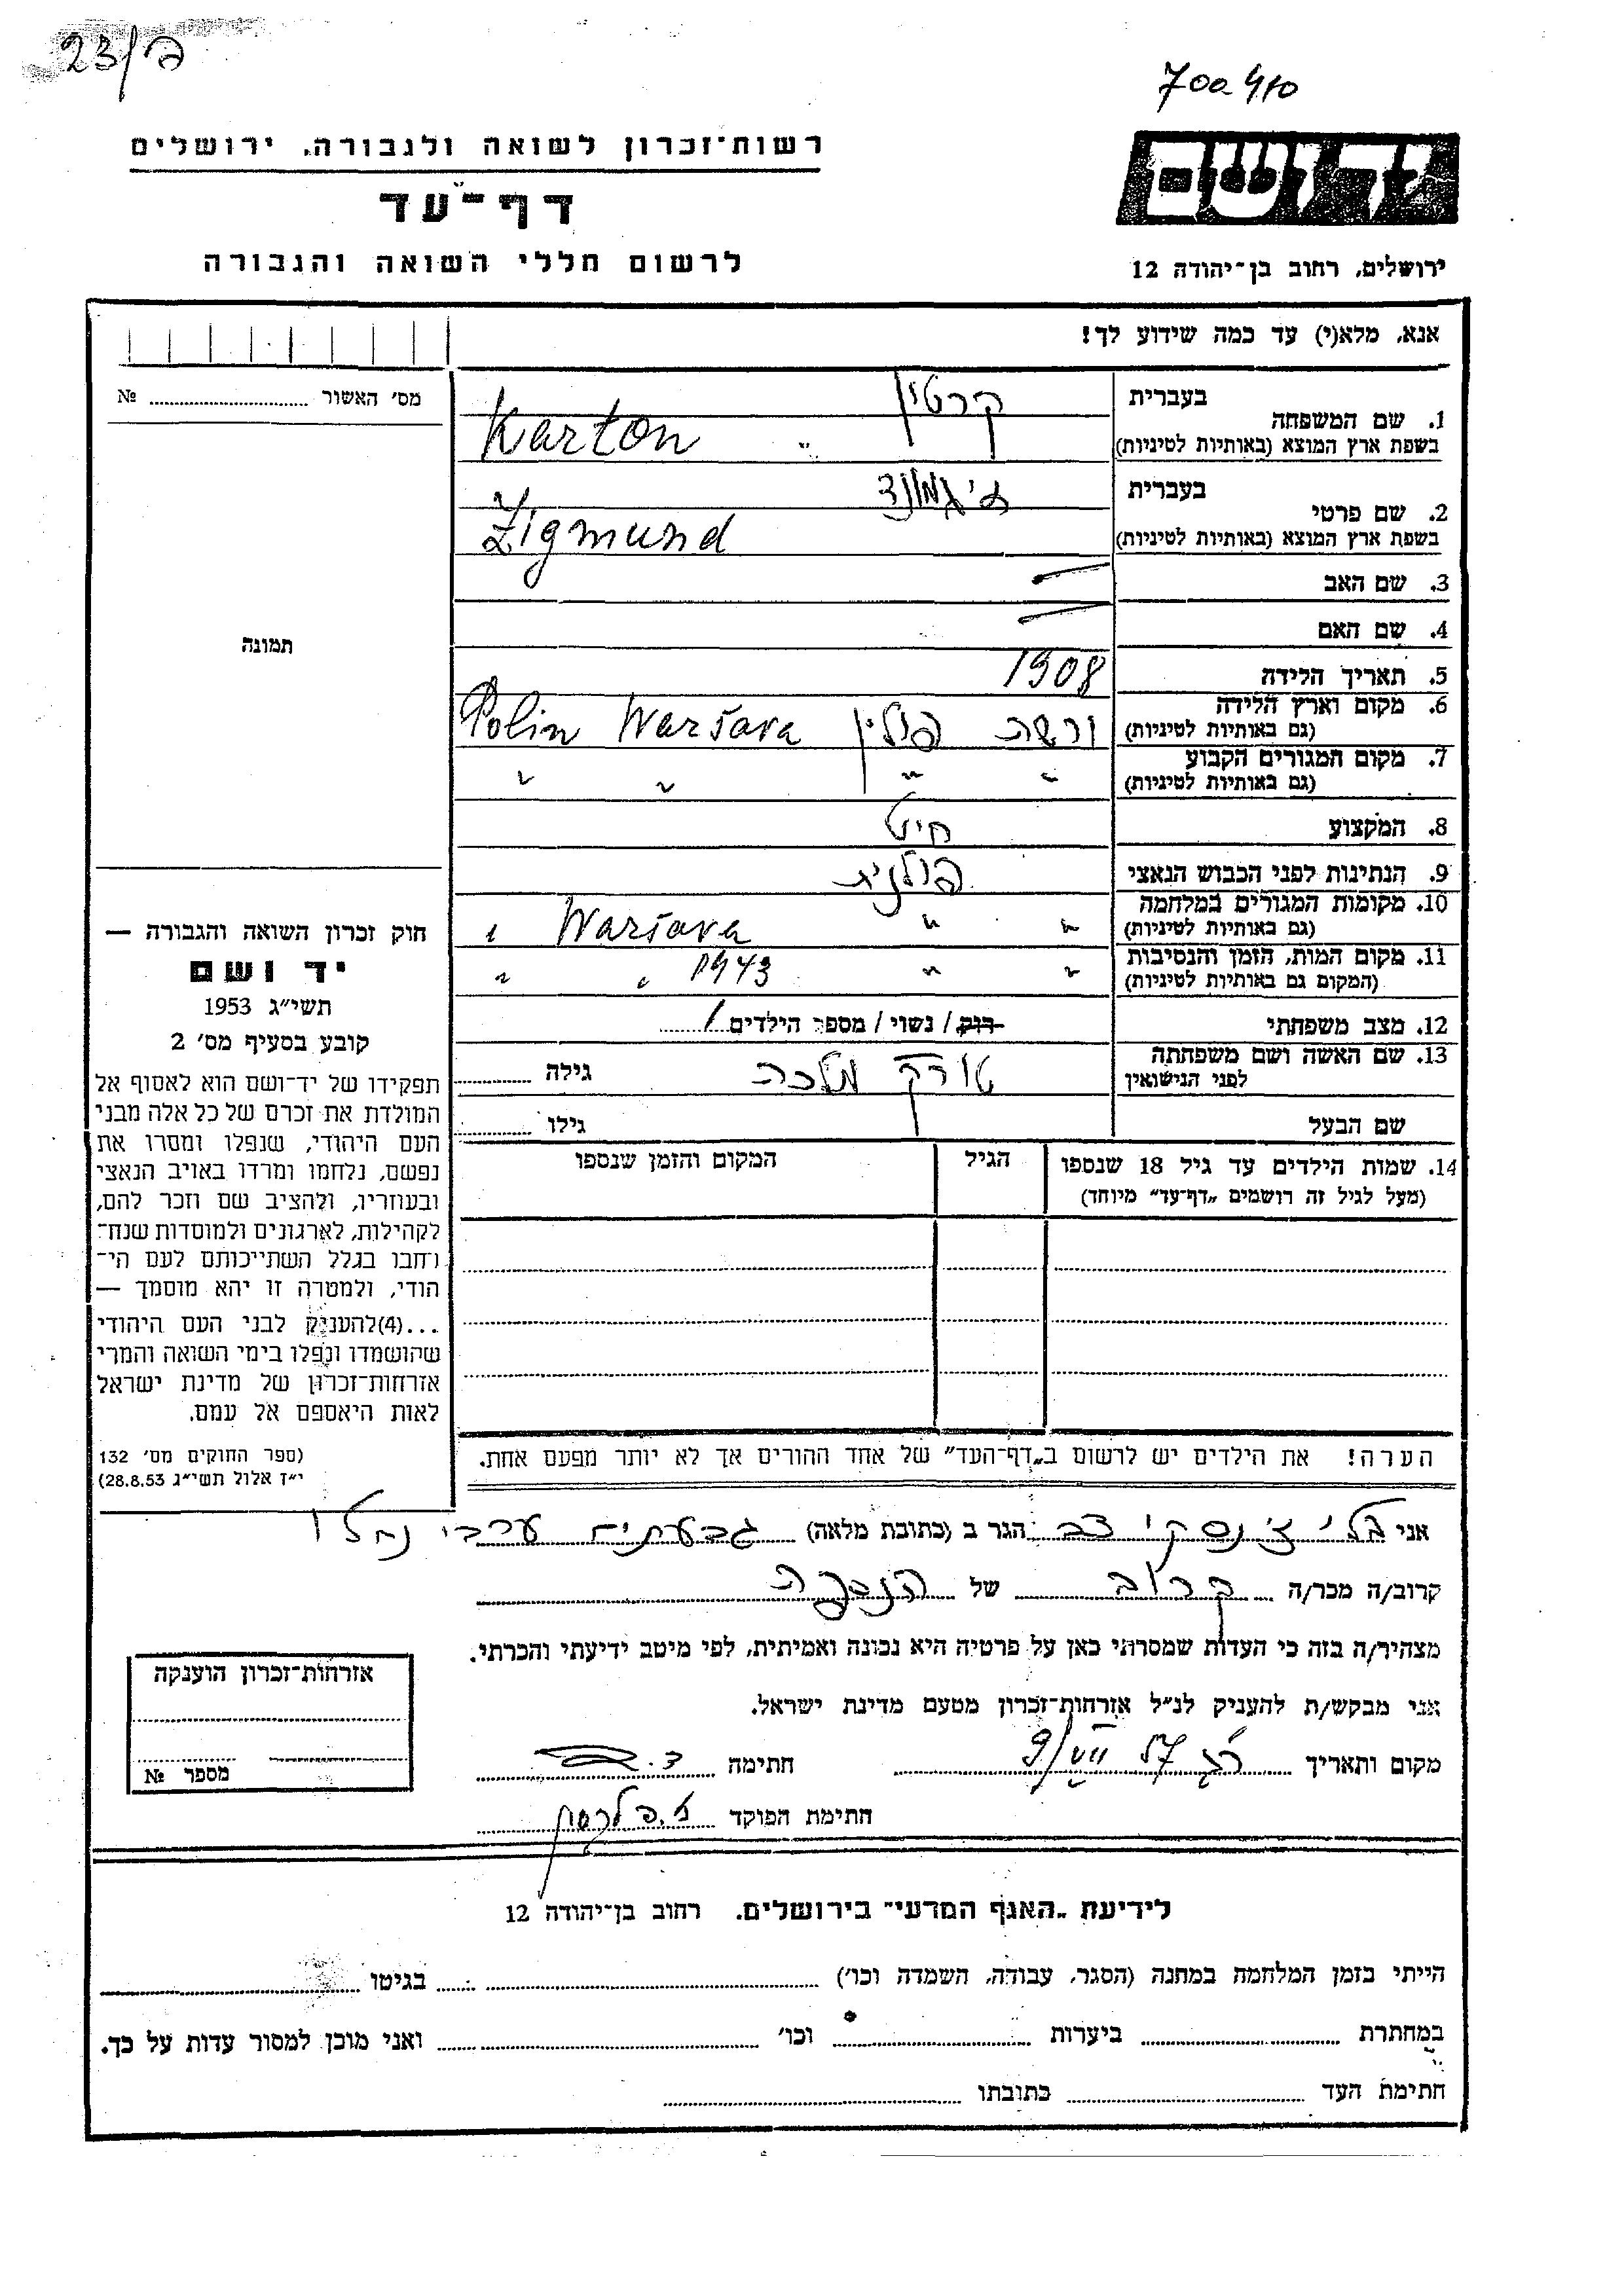 23/ק
700410
רשות־זכרון לשואה ולגבורה, ירושלים
דף־עד
לרשום חללי השואה והגבורה
יד ושם
ירושלים, רחוב בן־יהודה 12
אנא, מלא(י) עד כמה שידוע לך!
מס׳ האשור № 
1. שם המשפחה
בעברית קרטין
בשפת ארץ המוצא (באותיות לטיניות) Karton
2. שם פרטי
בעברית זיגמונד
בשפת ארץ המוצא (באותיות לטיניות) Zigmund
3. שם האב —
4. שם האם —
5. תאריך הלידה 1908
6. מקום וארץ הלידה (גם באותיות לטיניות) ורשה פולין Warsava Polin
7. מקום המגורים הקבוע (גם באותיות לטיניות) " " " "
8. המקצוע חייט
9. הנתינות לפני הכבוש הנאצי פולנית
10. מקומות המגורים במלחמה (גם באותיות לטיניות) " " Warsava "
11. מקום המות, הזמן והנסיבות (המקום גם באותיות לטיניות) " " 1943 " "
12. מצב משפחתי רוק / נשוי / מספר הילדים 1
13. שם האשה ושם משפחתה לפני הנישואין טורק מלכה גילה
שם הבעל גילו
14. שמות הילדים עד גיל 18 שנספו
(מעל לגיל זה רושמים „דף־עד״ מיוחד)
הגיל
המקום והזמן שנספו
הערה! את הילדים יש לרשום ב„דף־העד״ של אחד ההורים אך לא יותר מפעם אחת.
תמונה
חוק זכרון השואה והגבורה —
יד ושם
תשי״ג 1953
קובע בסעיף מס׳ 2
תפקידו של יד־ושם הוא לאסוף אל
המולדת את זכרם של כל אלה מבני
העם היהודי, שנפלו ומסרו את
נפשם, נלחמו ומרדו באויב הנאצי
ובעוזריו, ולהציב שם וזכר להם,
לקהילות, לארגונים ולמוסדות שנח־
רחבו בגלל השתייכותם לעם הי־
הודי, ולמטרה זו יהא מוסמך —
...(4)להעניק לבני העם היהודי
שהושמדו ונפלו בימי השואה והמרי
אזרחות־זכרון של מדינת ישראל
לאות היאספם אל עמם.
(ספר החוקים מס׳ 132
י״ז אלול תשי״ג 28.8.53)
אני צב הגר ב (כתובת מלאה) גבעתים ערבי נחל
קרוב/ה מכר/ה קרוב של הנספה
מצהיר/ה בזה כי העדות שמסרתי כאן על פרטיה היא נכונה ואמיתית, לפי מיטב ידיעתי והכרתי.
אני מבקש/ת להעניק לנ״ל אזרחות־זכרון מטעם מדינת ישראל.
מקום ותאריך חתימה
חתימת הפוקד
אזרחות־זכרון הוענקה
מספר №
לידיעת „האגף המדעי״ בירושלים. רחוב בן־יהודה 12
הייתי בזמן המלחמה במחנה (הסגר, עבודה, השמדה וכו׳) בגיטו
במחתרת ביערות וכו׳ ואני מוכן למסור עדות על כך.
חתימת העד כתובתו